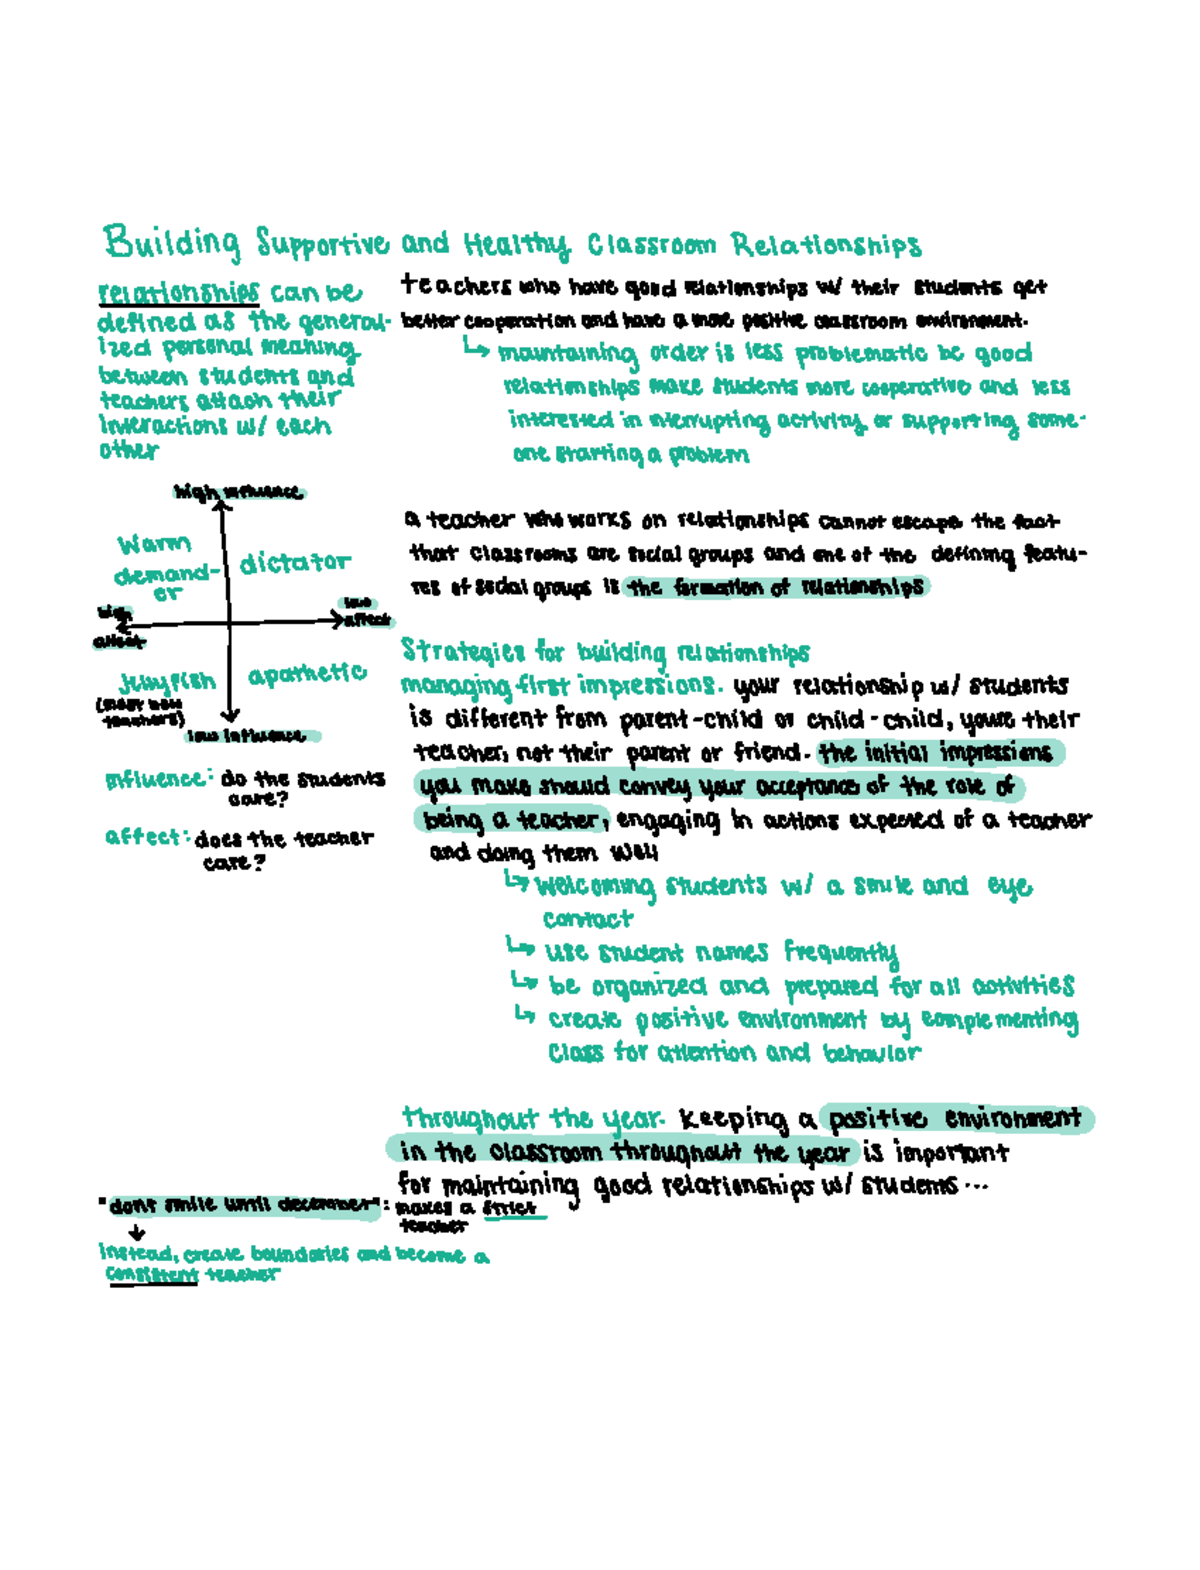 Building Supportive and Healthy Classroom Relationships
relationships can be
defined as the general-
ized personal meaning
between students and
teachers attach their
interactions w/ each
other
high influence
warm
demand-
er
dictator
high
affect
low
affect
Jellyfish
(most new
teachers)
apathetic
low influence
influence: do the students
care?
affect: does the teacher
care?
teachers who have good relationships w/ their students get
better cooperation and have a more positive classroom environment.
↳ maintaining order is less problematic bc good
relationships make students more cooperative and less
interested in interrupting activity or supporting some-
one starting a problem
a teacher who works on relationships cannot escape the fact
that classrooms are social groups and one of the defining featu-
res of social groups is the formation of relationships
Strategies for building relationships
managing first impressions. your relationship w/ students
is different from parent-child or child-child, youre their
teacher, not their parent or friend. the initial impressions
you make should convey your acceptance of the role of
being a teacher, engaging in actions expected of a teacher
and doing them well
↳ welcoming students w/ a smile and eye
contact
↳ use student names frequently
↳ be organized and prepared for all activities
↳ create positive environment by complementing
class for attention and behavior
throughout the year. keeping a positive environment
in the classroom throughout the year is important
for maintaining good relationships w/ students...
"dont smile until december": makes a strict
teacher
instead, create boundaries and become a
consistent teacher